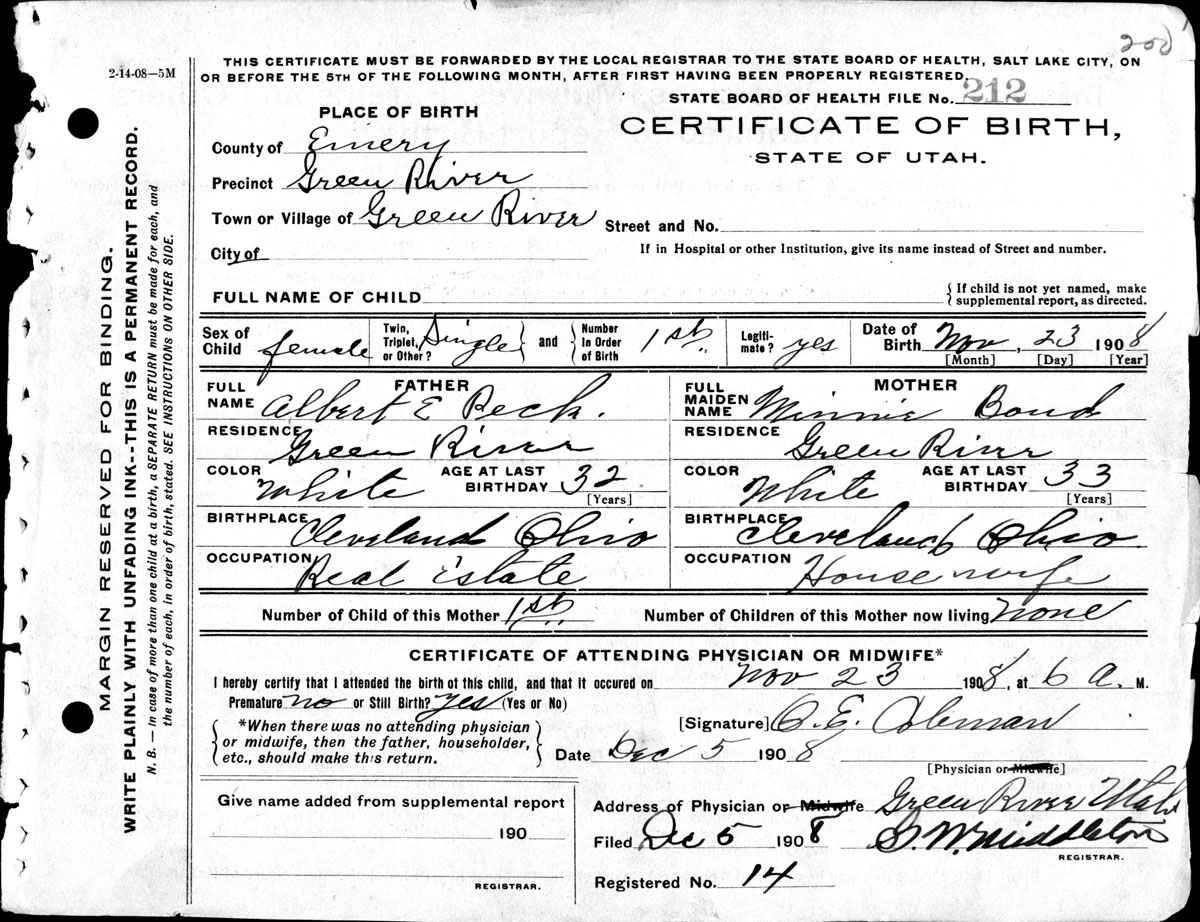 200
2-14-08—5M
THIS CERTIFICATE MUST BE FORWARDED BY THE LOCAL REGISTRAR TO THE STATE BOARD OF HEALTH, SALT LAKE CITY, ON
OR BEFORE THE 5TH OF THE FOLLOWING MONTH, AFTER FIRST HAVING BEEN PROPERLY REGISTERED.
STATE BOARD OF HEALTH FILE No. 212
CERTIFICATE OF BIRTH,
STATE OF UTAH.
PLACE OF BIRTH
County of Emery
Precinct Green River
Town or Village of Green River
Street and No.
City of
If in Hospital or other Institution, give its name instead of Street and number.
FULL NAME OF CHILD
{ If child is not yet named, make
supplemental report, as directed.
Sex of Child female
Twin, Triplet, or Other? Single and Number In Order of Birth 1st.
Legiti-mate? yes
Date of Birth Nov, 23 1908
[Month] [Day] [Year]
FATHER
FULL NAME Albert E Peck.
RESIDENCE Green River
COLOR White AGE AT LAST BIRTHDAY 32
[Years]
BIRTHPLACE Cleveland Ohio
OCCUPATION Real Estate
MOTHER
FULL MAIDEN NAME Minnie Bond
RESIDENCE Green River
COLOR White AGE AT LAST BIRTHDAY 33
[Years]
BIRTHPLACE Cleveland Ohio.
OCCUPATION Housewife
Number of Child of this Mother 1st. Number of Children of this Mother now living none
CERTIFICATE OF ATTENDING PHYSICIAN OR MIDWIFE*
I hereby certify that I attended the birth of this child, and that it occured on Nov 23 1908, at 6 a. M.
Premature? no or Still Birth? yes (Yes or No)
*When there was no attending physician
or midwife, then the father, householder,
etc., should make this return.
[Signature] C. E. Coleman
Date Dec 5 1908
[Physician or Midwife]
Give name added from supplemental report
190
REGISTRAR.
Address of Physician or Midwife Green River Utah
Filed Dec 5 1908 G. W. Middleton
REGISTRAR.
Registered No. 14
MARGIN RESERVED FOR BINDING.
WRITE PLAINLY WITH UNFADING INK--THIS IS A PERMANENT RECORD.
N. B. — In case of more than one child at a birth, a SEPARATE RETURN must be made for each, and
the number of each, in order of birth, stated. SEE INSTRUCTIONS ON OTHER SIDE.